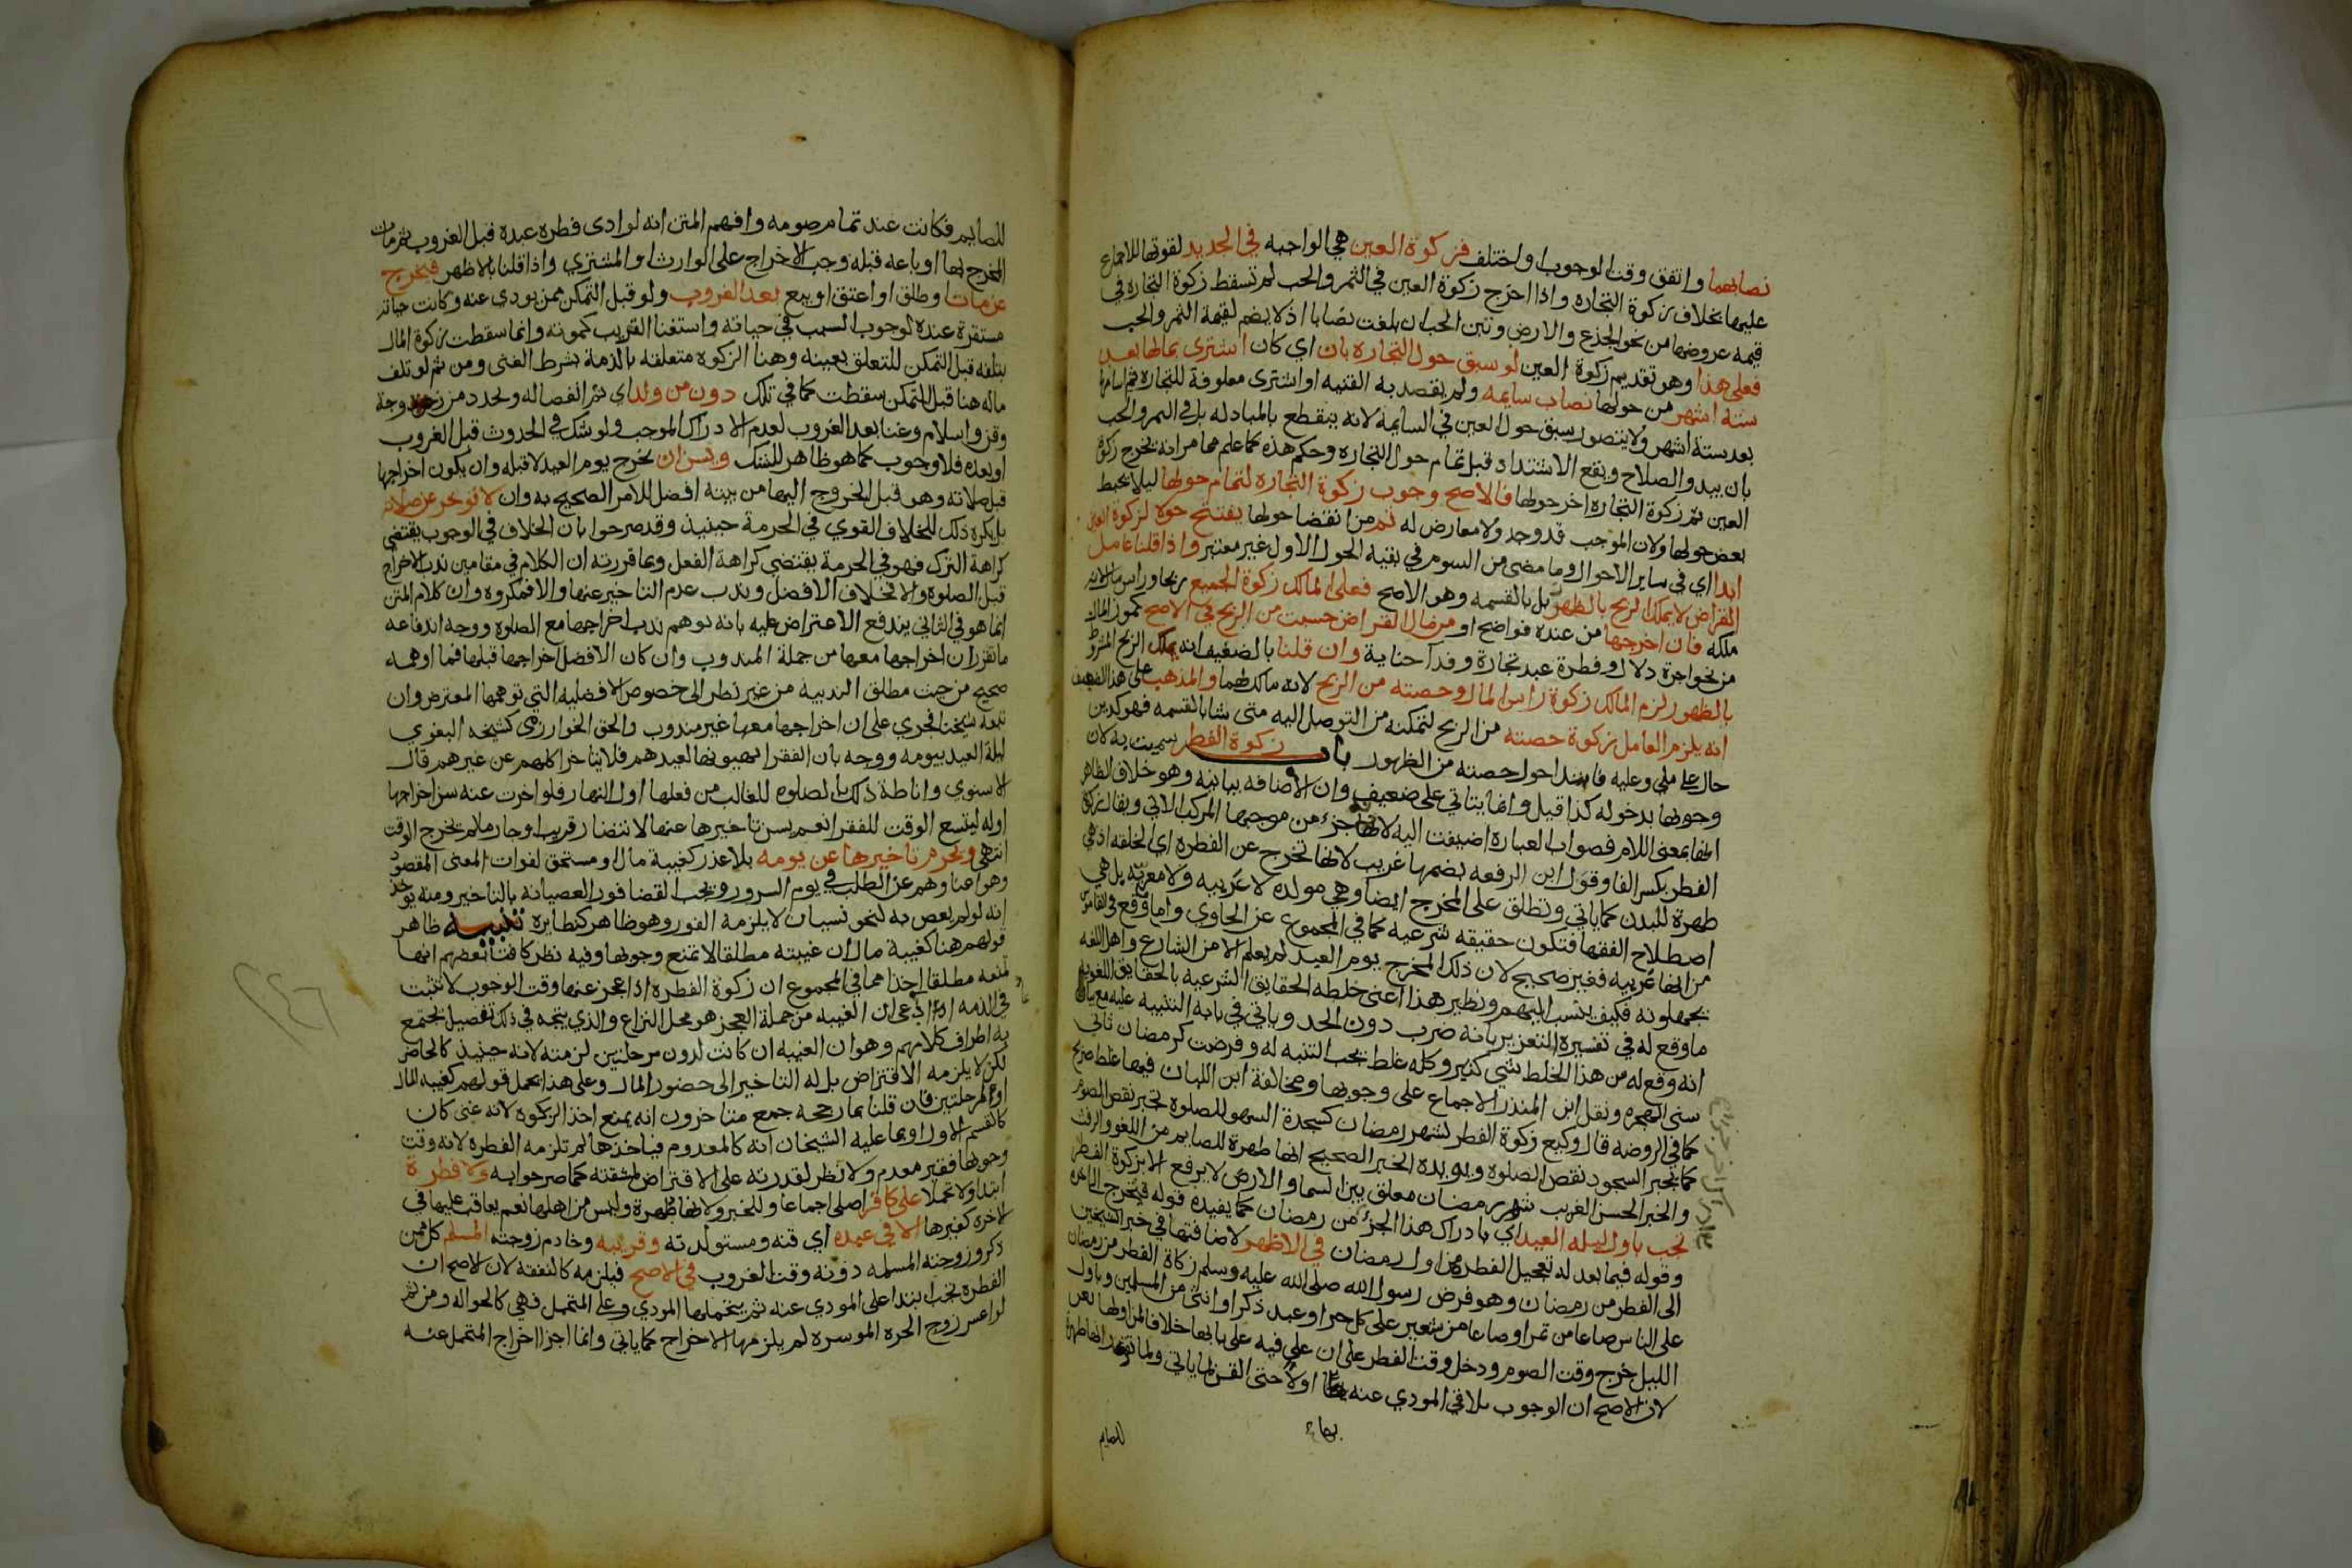 نصابهما واتفق وقت الوجوب او اختلف فزكوة العين هي الواجبه في الجديد لقوتها للاجماع
عليها بخلاف زكوة التجاره واذا اخرج زكوة العين في الثمر والحب لم تسقط زكوة التجاره في
قيمه عروضها من نحو الجذع والارض وتبن الحب ان بلغت نصابا اذ لا يضم لقيمة الثمر والحب
فعلى هذا وهو تقديم زكوة العين لو سبق حول التجاره بان اي كان اشترى بمالها بعد
ستة اشهر من حولها نصاب سايمه ولم يقصد به القنيه او اشترى معلوفة للتجاره ثم اسامها
بعد ستة اشهر ولا يتصور سبق حول العين في السايمة لانه ينقطع بالمبادله بل في الثمر والحب
بان يبدو الصلاح ويقع الاشتداد قبل تمام حول التجاره وحكم هذه كما علم مما مر انه يخرج زكوة
العين ثم زكوة التجاره اخر حولها فالاصح وجوب زكوة التجاره لتمام حولها ليلا يحبط
بعض حولها ولان الموجب قد وجد ولا معارض له ثم من انقضا حولها يفتتح حولا لزكوة العين
ابدا اي في ساير الاحوال وما مضى من السوم في بقيه الحول الاول غير معتبر واذا قلنا عامل
القراض لا يملك الربح بالظهور بل بالقسمه وهو الاصح فعلى المالك زكوة الجميع ربحا وراس مال لانه
ملكه فان اخرجها من عنده فواضح او من مال القراض حسبت من الربح في الاصح كمون المال
من نحو اجرة دلال وفطرة عبد تجارة وفدا جناية وان قلنا بالضعيف انه يملك الربح المشروط
بالظهور لزم المالك زكوة راس المال وحصته من الربح لانه مالك لهما والمذهب على هذا الضعيف
انه يلزم العامل زكوة حصته من الربح لتمكنه من التوصل اليه متى شا بالقسمه فهو كدين
حال على ملي وعليه فابتدا حول حصته من الظهور باب زكوة الفطر سميت به لان
وجوبها بدخوله كذا قيل وانما يتاتي على ضعيف وان الاضافه بيانيه وهو خلاف الظاهر
انها بمعنى اللام فصواب العباره اضيفت اليه لانه جزء من موجبها المركب الاتي ويقال زكوة
الفطر بكسر الفا وقول ابن الرفعه بضمها غريب لانها تخرج عن الفطره اي الخلقه اذ هي
طهرة للبدن كما ياتي وتطلق على المخرج ايضا وهي مولده لا عربيه ولا معربه بل هي
اصطلاح الفقها فتكون حقيقه شرعيه كما في المجموع عن الحاوي واما وقع في القاموس
من انها عربيه فغير صحيح لان ذلك المخرج يوم العيد لم يعلم الا من الشارع واهل اللغه
يجهلونه فكيف ينسب اليهم ونظير هذا اعني خلطه الحقايق الشرعيه بالحقايق اللغويه
ما وقع له في تفسيره التعزير بانه ضرب دون الحد وياتي في بابه التنبيه عليه مع بيان
انه وقع له من هذا الخلط شي كثير وكله غلط يجب التنبه له وفرضت كرمضان ثاني
سني الهجره ونقل ابن المنذر الاجماع على وجوبها ومخالفة ابن اللبان فيها غلط صريح
كما في الروضه قال وكيع زكوة الفطر لشهر رمضان كسجدة السهو للصلوة تجبر نقص الصوم
كما يجبر السجود نقص الصلوة ويويده الخبر الصحيح انها طهرة للصايم من اللغو والرفث
والخبر الحسن الغريب شهر رمضان معلق بين السما والارض لا يرفع الا بزكوة الفطر
تجب باول ليله العيد اي بادراك هذا الجزء من رمضان كما يفيده قوله فتخرج الى اخره
وقوله فيما بعد له تعجيل الفطره من اول رمضان في الاظهر لاضافتها في خبر الشيخين
الى الفطر من رمضان وهو فرض رسول الله صلى الله عليه وسلم زكاة الفطر من رمضان
على الناس صاعا من تمر او صاعا من شعير على كل حر او عبد ذكر او انثى من المسلمين وباول
الليل خرج وقت الصوم ودخل وقت الفطر على ان على فيه على بابها خلافا لمن اولها بعن
لان الاصح ان الوجوب يلاقي المودي عنه اولا حتى القن لما ياتي ولما تقرر انها طهرة
للصايم
للصايم فكانت عند تمام صومه وافهم المتن انه لو ادى فطره عبده قبل الغروب ثم مات
المخرج لها او باعه قبله وجب الاخراج على الوارث او المشتري واذا قلنا بالاظهر فيخرج
عن مات او طلق او اعتق او بيع بعد الغروب ولو قبل التمكن ممن يودي عنه وكانت حياته
مستقرة عنده لوجوب السبب في حياته واستغنا القريب كموته وانما سقطت زكوة المال
بتلفه قبل التمكن للتعلق بعينه وهنا الزكوه متعلقه بالذمة بشرط الغنى ومن ثم لو تلف
ماله هنا قبل التمكن سقطت كما في تلك دون من ولد اي تم انفصاله وتجدد من زوجة
وقن واسلام وغنا بعد الغروب لعدم الادراك الموجب ولو شك في الحدوث قبل الغروب
او بعده فلا وجوب كما هو ظاهر للشك ويسن ان تخرج يوم العيد لا قبله وان يكون اخراجها
قبل صلاته وهو قبل الخروج اليها من بيته افضل للامر الصحيح به وان لا توخر عن صلاته
بل يكره ذلك للخلاف القوي في الحرمة حينيذ وقد صرحوا بان الخلاف في الوجوب يقتضي
كراهة الترك فهو في الحرمة يقتضي كراهة الفعل وبما قررته ان الكلام في مقامين ندب الاخراج
قبل الصلوة والا فخلاف الافضل وندب عدم التاخير عنها والا فمكروه وان كلام المتن
انما هو في الثاني يندفع الاعتراض عليه بانه يوهم ندب اخراجها مع الصلوة ووجه اندفاعه
ما تقرر ان اخراجها معها من جملة المندوب وان كان الافضل اخراجها قبلها فما اوهمه
صحيح من حيث مطلق الندبيه من غير نظر الى خصوص الافضليه التي توهمها المعترض وان
تبعه شيخنا فجرى على ان اخراجها معها غير مندوب والحق الخوارزمي كشيخه البغوي
ليلة العيد بيومه ووجه بان الفقرا يهيونها لعيدهم فلا يتاخر اكلهم عن غيرهم قال
الاسنوي واناطة ذلك بالصلوه للغالب من فعلها اول النهار فلو اخرت عنه سن اخراجها
اوله ليتسع الوقت للفقرا نعم يسن تاخيرها عنها لانتضار قريب او جار ما لم يخرج الوقت
انتهى ويحرم تاخيرها عن يومه بلا عذر كغيبة مال او مستحق لفوات المعنى المقصود
وهو اغناوهم عن الطلب في يوم السرور ويجب القضا فورا لعصيانه بالتاخير ومنه يوخذ
انه لو لم يعص به لنحو نسيان لا يلزمه الفور وهو ظاهر كنظايره تنبيه ظاهر
قولهم هنا كغيبة مال ان غيبته مطلقا لا تمنع وجوبها وفيه نظر كافتا بعضهم انها
تمنعه مطلقا اخذا مما في المجموع ان زكوة الفطره اذا عجز عنها وقت الوجوب لا تثبت
في الذمه اذ ادعى ان الغيبه من جملة العجز هو محل النزاع والذي يتجه في ذلك تفصيل يجتمع
به اطراف كلامهم وهو ان الغيبه ان كانت لدون مرحلتين لزمته لانه حينيذ كالحاضر
لكن لا يلزمه الاقتراض بل له التاخير الى حضور المال وعلى هذا يحمل قولهم كغيبه المال
او لمرحلتين فان قلنا بما رجحه جمع متاخرون انه يمنع اخذ الزكوه لانه غنى كان
كالقسم الاول او بما عليه الشيخان انه كالمعدوم فياخذها لم تلزمه الفطره لانه وقت
وجوبها فقير معدم ولا نظر لقدرته على الاقتراض لمشقته كما صرحوا به ولا فطرة
ابتدا ولا تحملا على كافر اصلي اجماعا وللخبر ولانها طهرة وليس من اهلها نعم يعاقب عليها في
الاخره كغيرها الا في عبده اي قنه ومستولدته وقريبه وخادم زوجته المسلم كل ممن
ذكر وزوجته المسلمه دونه وقت الغروب في الاصح فيلزمه كالنفقه لان الاصح ان
الفطره تجب ابتدا على المودي عنه ثم يتحملها المودي وعلى المتحمل فهي كالحواله ومن ثم
لو اعسر زوج الحره الموسره لم يلزمها الاخراج كما ياتي وانما اجزا اخراج المتحمل عنه